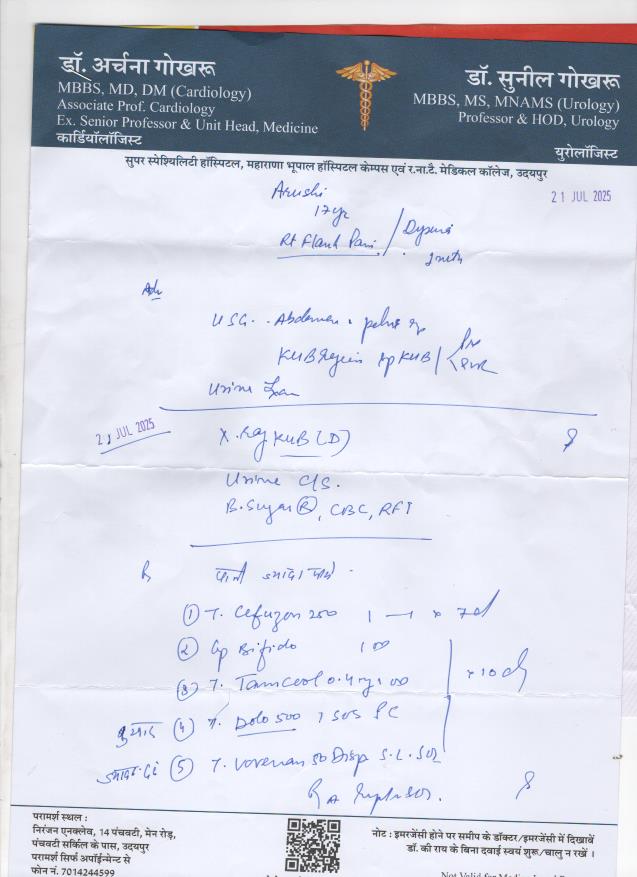 डॉ. अर्चना गोखरू
MBBS, MD, DM (Cardiology)
Associate Prof. Cardiology
Ex. Senior Professor & Unit Head, Medicine
कार्डियॉलॉजिस्ट
डॉ. सुनील गोखरू
MBBS, MS, MNAMS (Urology)
Professor & HOD, Urology
यूरोलॉजिस्ट
सुपर स्पेश्यिलिटी हॉस्पिटल, महाराणा भूपाल हॉस्पिटल केम्पस एवं र.ना.टै. मेडिकल कॉलेज, उदयपुर
21 JUL 2025
Arushi
17yr
Rt Flank Pain /
Adv
USG. Abdomen
KUB Region KUB / < PVR
Urine
21 JUL 2025
X. Ray KUB (D)
Urine C/S.
B. Sugar (R), CBC, RFT
R
पानी ज्यादा पीवे
① T. Cefuzon 250 1 — 1 x 7d
② Cp Bifido
③ T. 0.4mg x 10 d
बुखार ④ T. Dolo 500 1 SOS
⑤ T. Voveran 50 Disp S.L. SOS
परामर्श स्थल :
निरंजन एनक्लेव, 14 पंचवटी, मेन रोड़,
पंचवटी सर्किल के पास, उदयपुर
परामर्श सिर्फ अपॉईन्मेन्ट से
फोन नं. 7014244599
नोट : इमरजेंसी होने पर समीप के डॉक्टर/इमरजेंसी में दिखावें
डॉ. की राय के बिना दवाई स्वयं शुरू/चालु न रखें ।